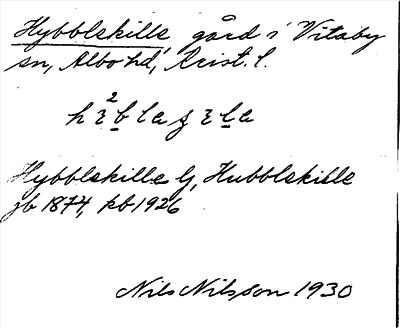 Hybblskille gård i Vitaby
sn, Albo hd, Krist. l.
Hybblskille lj, Hubblskille
jb 1874, kb 1926
Nils Nilsson 1930